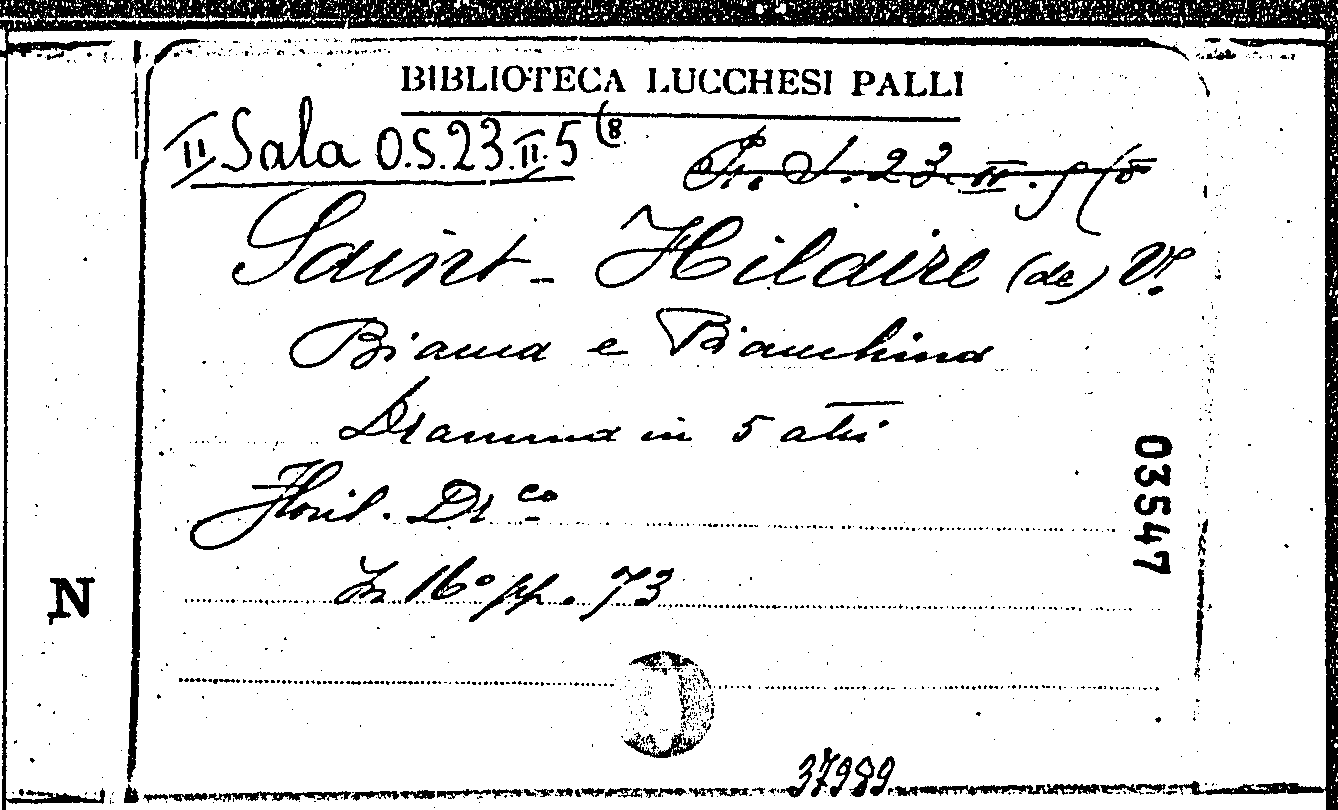 BIBLIOTECA LUCCHESI PALLI
II Sala O.S.23.II.5(8
Saint-Hilaire (de) V.
Bianca e Bianchina
Dramma in 5 atti
Floril. Dr.co
In 16° pp. 73
03547
N
37989